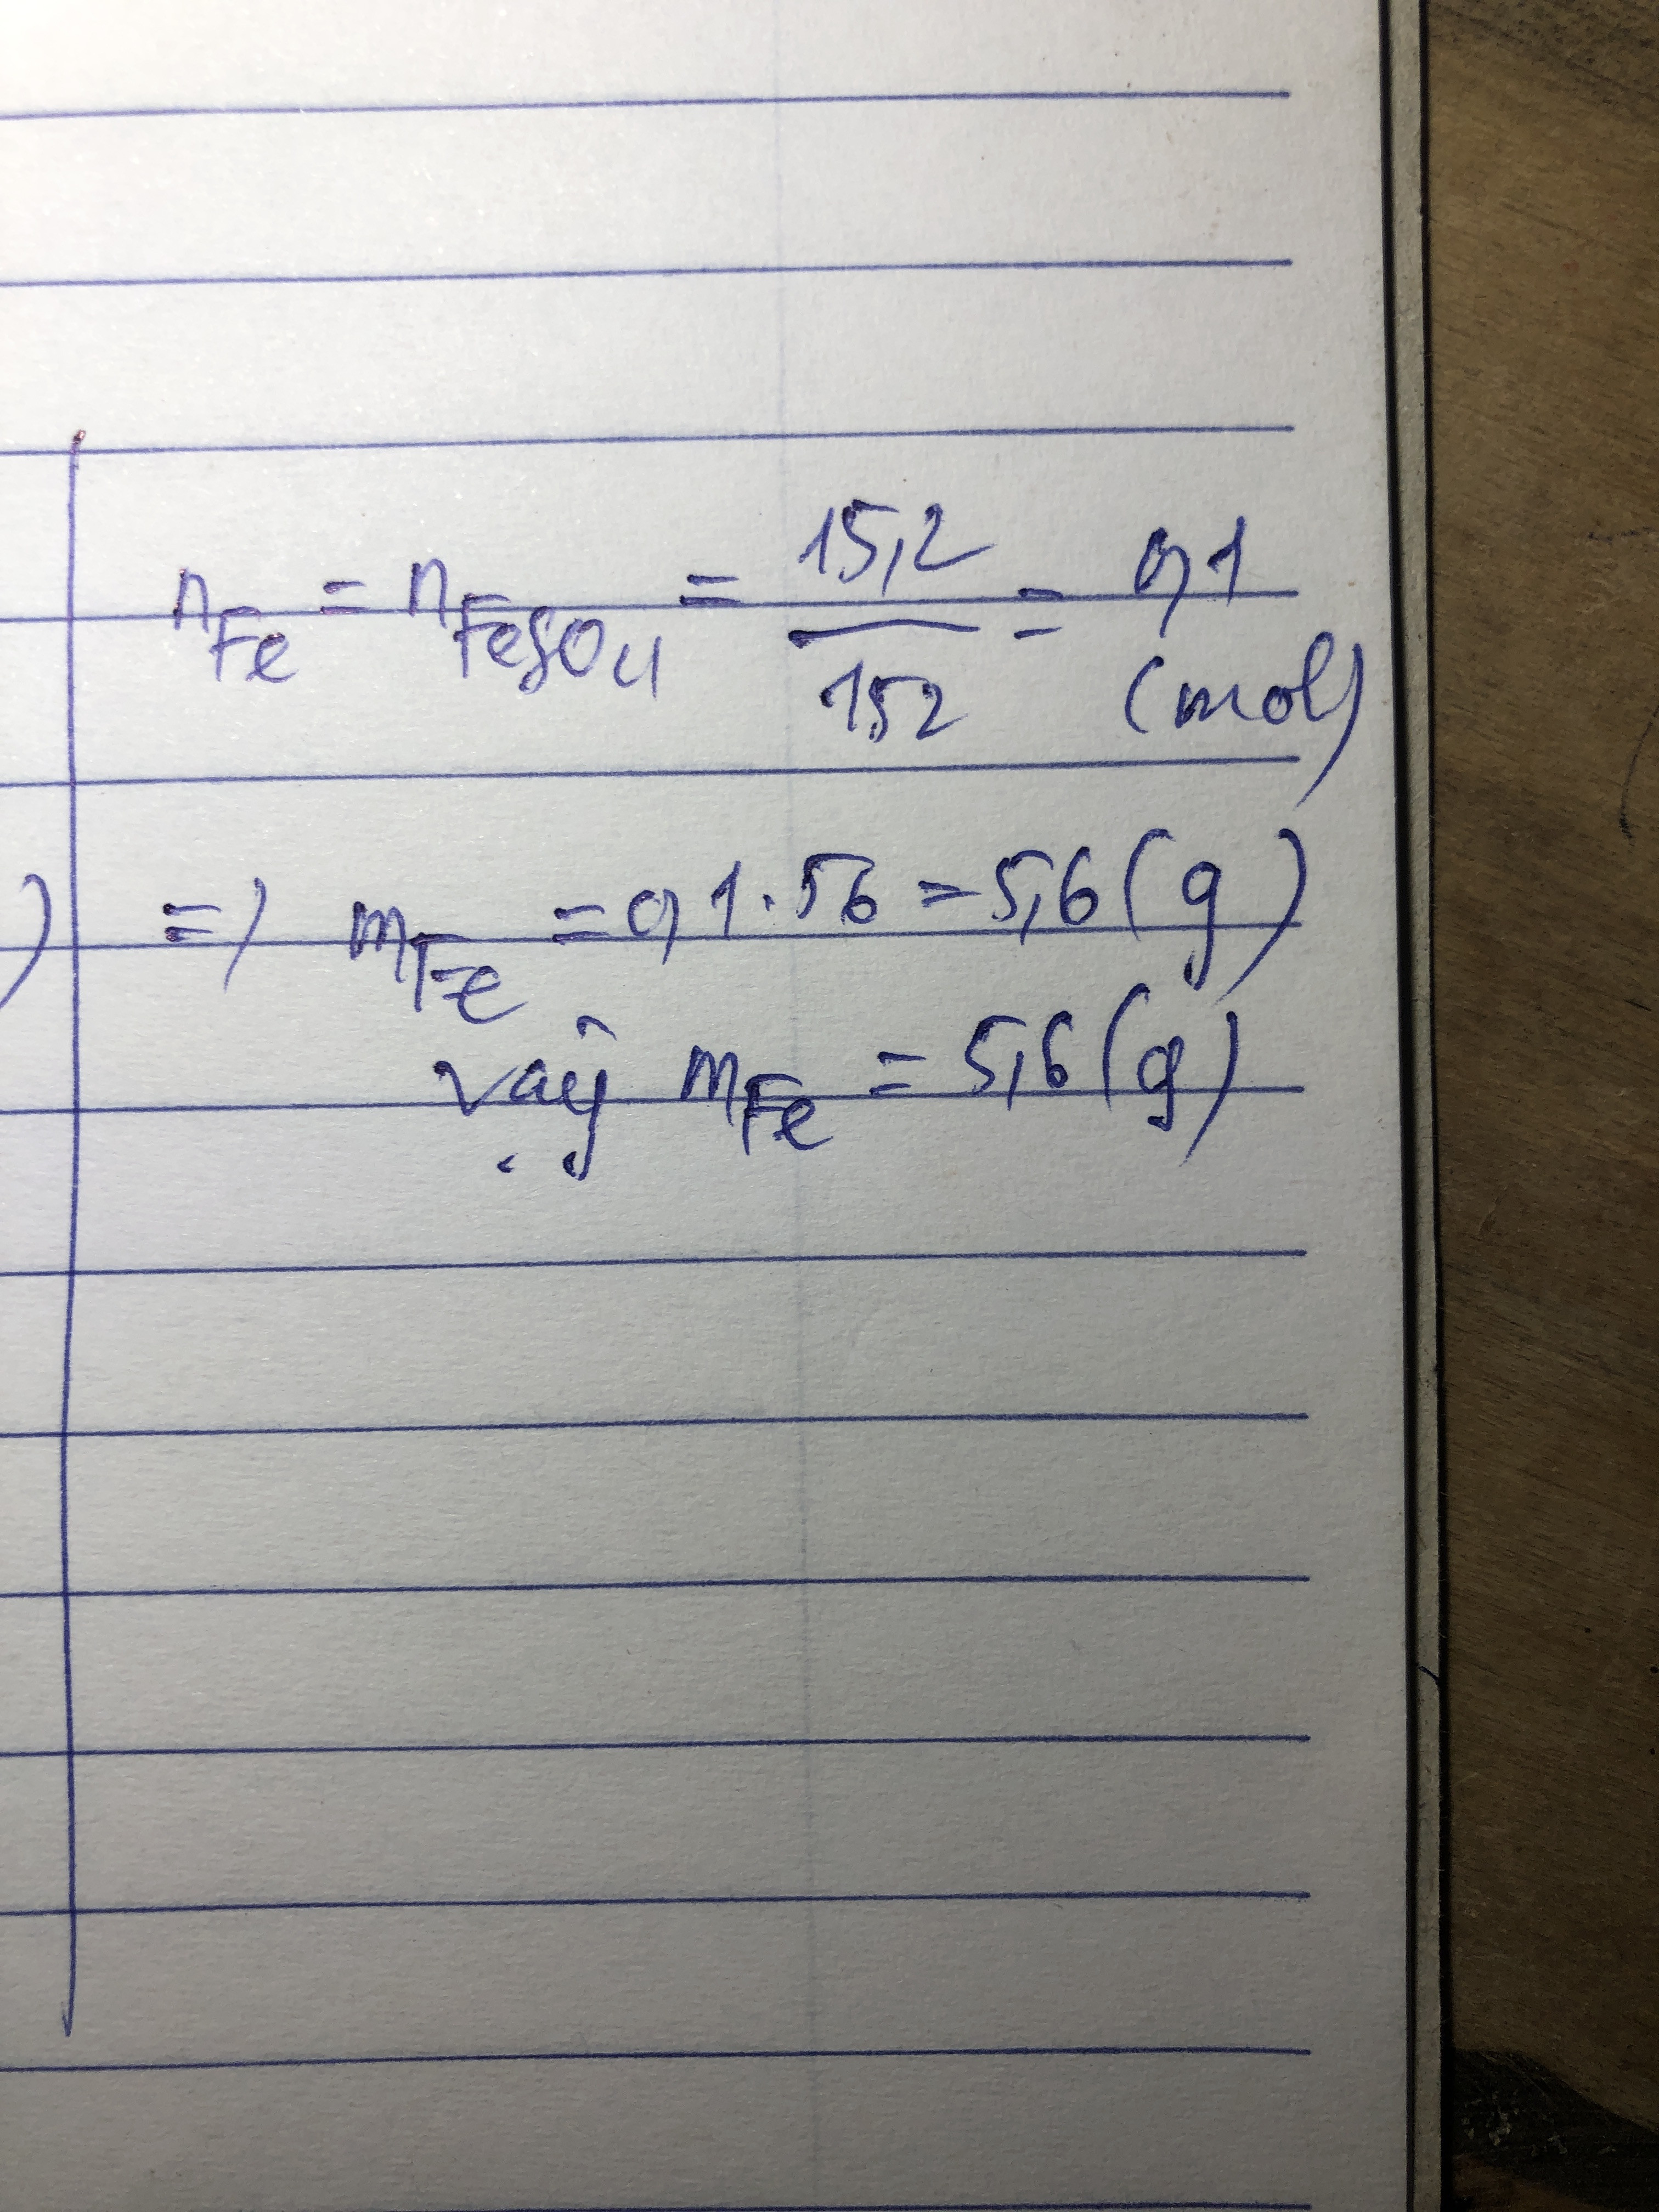 n_Fe = n_FeSO4 = 15,2/152 = 0,1
(mol)
) => m_Fe = 0,1.56 = 5,6 (g)
vậy m_Fe = 5,6 (g)